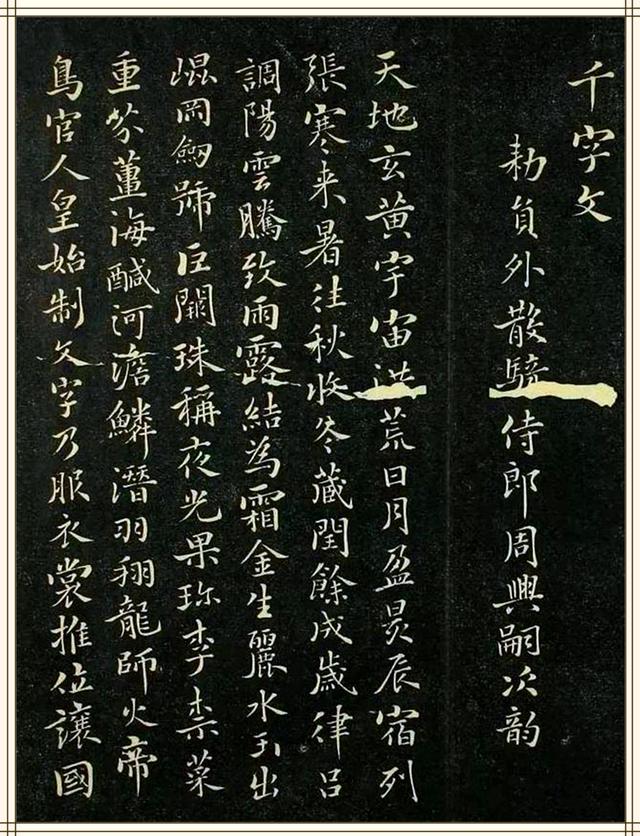 千字文
勑員外散騎侍郎周興嗣次韵
天地玄黃宇宙洪荒日月盈昃辰宿列
張寒来暑往秋收冬藏閏餘成歲律呂
調陽雲騰致雨露結為霜金生麗水玉出
崐岡劒號巨闕珠稱夜光果珎李柰菜
重芥薑海鹹河澹鱗潛羽翔龍師火帝
鳥官人皇始制文字乃服衣裳推位讓國